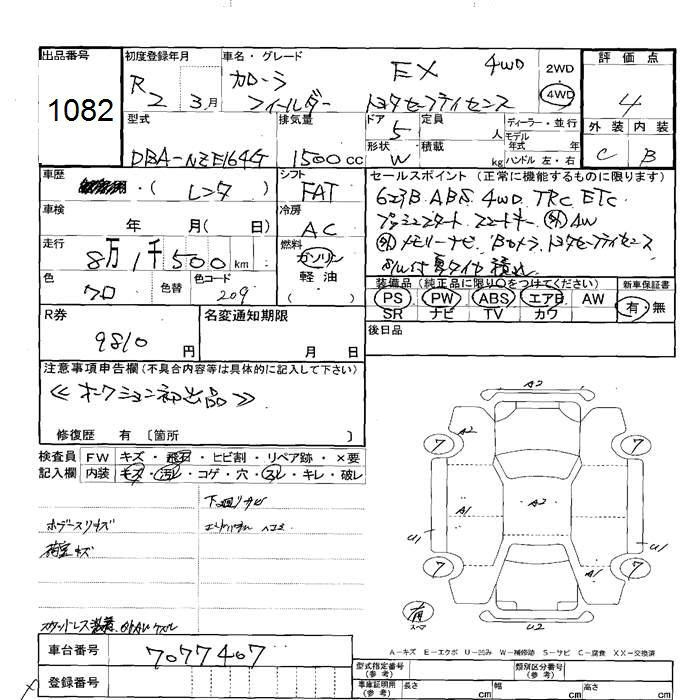 出品番号
1082
初度登録年月
R2 3月
車名・グレード
カローラ
フィールダー
EX 4WD
トヨタセーフティセンス
2WD
4WD
評価点
4
外装 内装
C B
型式
DBA-NZE164G
排気量
1500cc
ドア
5
形状
W
定員
人
積載
kg
ディーラー・並行
モデル
年式 年
ハンドル 左・右
車歴
(レンタ)
車検
年 月( 日)
走行
8万1千500km
色
クロ
色替
色コード
209
シフト
FAT
冷房
AC
燃料
ガソリン
軽油
( )
セールスポイント (正常に機能するものに限ります)
623B ABS 4WD TRC ETC
プッシュスタート スマートキー 外AW
外メモリーナビ Bカメラ トヨタセーフティセンス
夏タイヤ積込
装備品 (純正品に限り○をつけてください)
PS PW ABS エアB AW
SR ナビ TV カワ
新車保証書
有・無
R券
9810円
名変通知期限
月 日
後日品
注意事項申告欄(不具合内容等は具体的に記入して下さい)
≪オークション初出品≫
修復歴 有 〔箇所 〕
検査員
記入欄
FW キズ・飛石・ヒビ割・リペア跡・×要
内装 モズ・汚レ・コゲ・穴・スレ・キレ・破レ
下廻リサビ
荷室キズ
A2
7
A2
7
A1
A2
U1
U1
7
A1
7
有
スペア
U2
A-キズ E-エクボ U-凹み W-補修跡 S-サビ C-腐食 XX-交換済
車台番号
7077407
登録番号
型式指定番号
(参考)
類別区分番号
(参考)
車庫証明用
(参考)
長さ cm
幅 cm
高さ cm